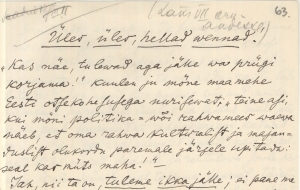 63.
Üles, üles, hellad wennad.
"Kas näe, tulewad aga jälle wa prügi
korjama!" kuulen ja mõne meamehe
Eesti otsekohesusega nurisewat, teine asi,
kui mõni politika- wõi rahwamees waewa
näeb, et oma rahwa kulturalist ja majan-
duslist olukorda paremale järjele upitada:
seal kas müts maha!"
Jah, nii ta on, tuleme ikka jälle; ei pane me